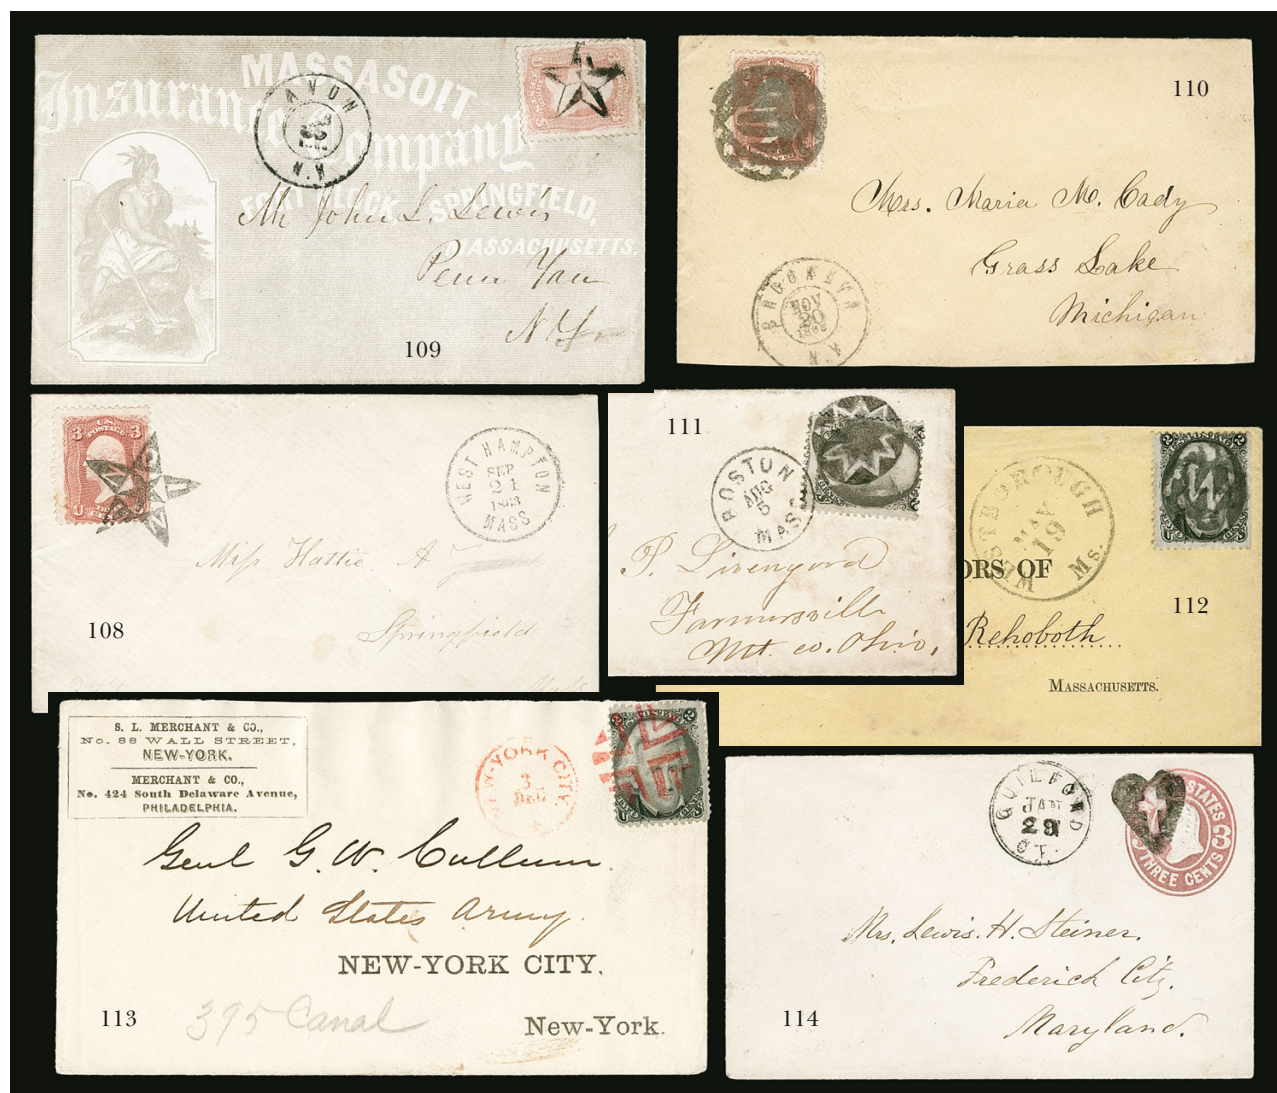 MASSASOIT
Insurance
Company
FORT BLOCK, SPRINGFIELD,
MASSACHUSETTS.
AVON
N.Y.
Mr John L. Lewis
Penn Yan
N.Y.
109
110
Mrs. Maria M. Cady
Grass Lake
Michigan
BROOKLYN
NOV
20
N.Y.
U.S.
POSTAGE
3 3
WEST HAMPTON
SEP
21
1863
MASS
Miss Hattie A
Springfield
108
111
BOSTON
AUG
5
MASS.
P. Livengood
Farmersville
Mt. co. Ohio.
WESTBOROUGH
MAY
19
Ms.
ORS OF
112
Rehoboth
MASSACHUSETTS.
S. L. MERCHANT & CO.,
No. 88 WALL STREET,
NEW-YORK.
MERCHANT & CO.,
No. 424 South Delaware Avenue,
PHILADELPHIA.
NEW-YORK CITY.
3
DEC
Genl G. W. Cullum.
United States Army.
NEW-YORK CITY,
395 Canal
New-York.
113
GUILFORD
JAN
29
CT.
STATES
3
THREE CENTS
Mrs. Lewis. H. Steiner.
Frederick City.
Maryland.
114